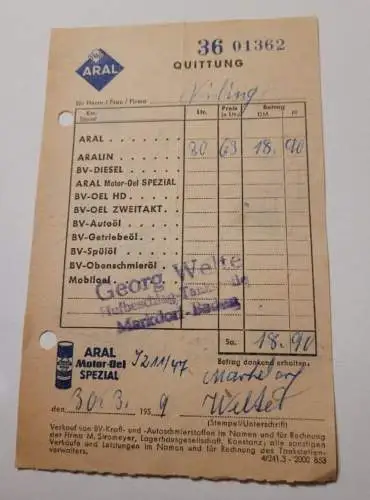 ARAL
36 01362
QUITTUNG
für Herrn / Frau / Firma
Km. Stand Ltr. Preis je Ltr. Betrag DM Pf
ARAL
ARALIN 30 63 18. 90
BV-DIESEL
ARAL Motor-Oel SPEZIAL
BV-OEL HD
BV-OEL ZWEITAKT
BV-Autoöl
BV-Getriebeöl
BV-Spülöl
BV-Obenschmieröl
Mobiloel
Georg Welte
Hufbeschlag
Markdorf-Baden
Sa. 18. 90
ARAL
Motor-Oel
SPEZIAL
Betrag dankend erhalten:
Markdorf
den 30. 3. 1959 Welte
(Stempel/Unterschrift)
Verkauf von BV-Kraft- und -Autoschmierstoffen im Namen und für Rechnung
der Firma M. Stromeyer, Lagerhausgesellschaft, Konstanz; alle sonstigen
Verkäufe und Leistungen im Namen und für Rechnung des Tankstellen-
verwalters.
4/241.3 - 2000 853